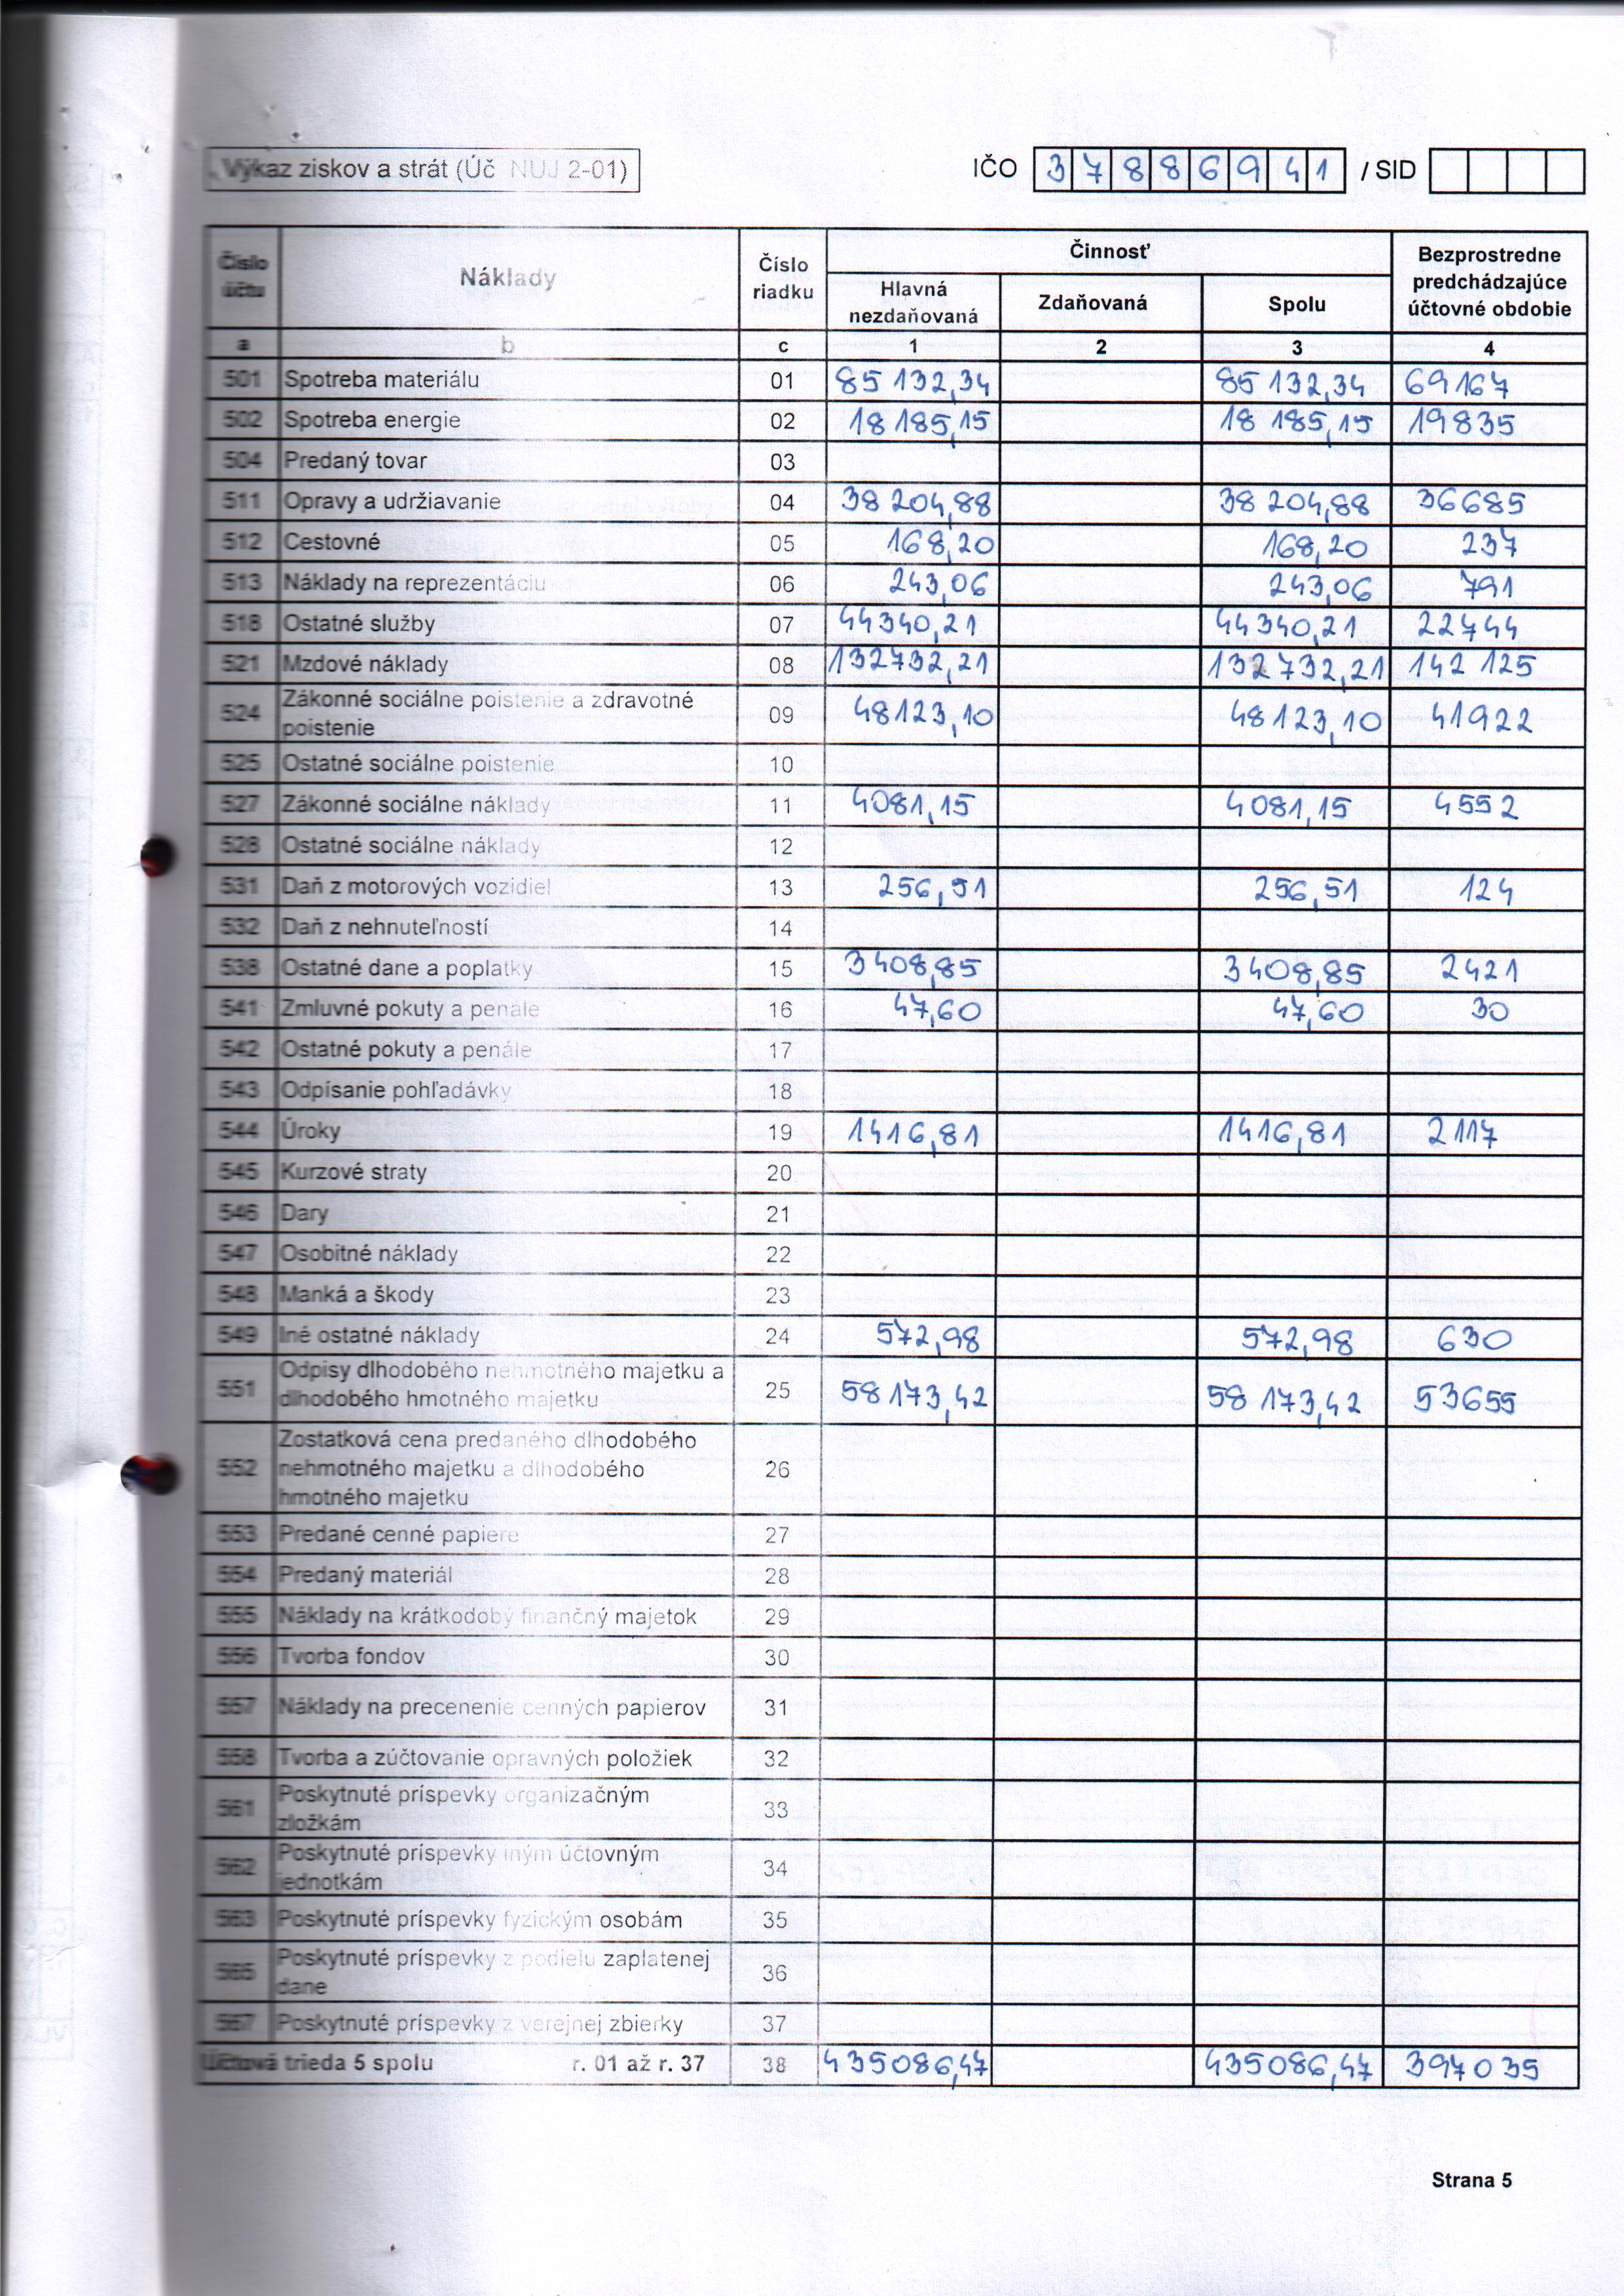 Výkaz ziskov a strát (Úč NUJ 2-01)
IČO 37886941 / SID
Číslo účtu Náklady Číslo riadku Činnosť Bezprostredne predchádzajúce účtovné obdobie
Hlavná nezdaňovaná Zdaňovaná Spolu
a b c 1 2 3 4
501 Spotreba materiálu 01 85 132,34 85 132,34 69167
502 Spotreba energie 02 18 185,15 18 185,15 19835
504 Predaný tovar 03
511 Opravy a udržiavanie 04 38 204,88 38 204,88 36685
512 Cestovné 05 168,20 168,20 237
513 Náklady na reprezentáciu 06 243,06 243,06 791
518 Ostatné služby 07 44340,21 44340,21 22744
521 Mzdové náklady 08 132732,21 132732,21 142 125
524 Zákonné sociálne poistenie a zdravotné
poistenie 09 48123,10 48123,10 41922
525 Ostatné sociálne poistenie 10
527 Zákonné sociálne náklady 11 4081,15 4081,15 4552
528 Ostatné sociálne náklady 12
531 Daň z motorových vozidiel 13 256,51 256,51 124
532 Daň z nehnuteľností 14
538 Ostatné dane a poplatky 15 3408,85 3408,85 2421
541 Zmluvné pokuty a penále 16 47,60 47,60 30
542 Ostatné pokuty a penále 17
543 Odpísanie pohľadávky 18
544 Úroky 19 1416,81 1416,81 2117
545 Kurzové straty 20
546 Dary 21
547 Osobitné náklady 22
548 Manká a škody 23
549 Iné ostatné náklady 24 572,98 572,98 630
551 Odpisy dlhodobého nehmotného majetku a
dlhodobého hmotného majetku 25 58 173,42 58 173,42 53655
552 Zostatková cena predaného dlhodobého
nehmotného majetku a dlhodobého
hmotného majetku 26
553 Predané cenné papiere 27
554 Predaný materiál 28
555 Náklady na krátkodobý finančný majetok 29
556 Tvorba fondov 30
557 Náklady na precenenie cenných papierov 31
558 Tvorba a zúčtovanie opravných položiek 32
561 Poskytnuté príspevky organizačným
zložkám 33
562 Poskytnuté príspevky iným účtovným
jednotkám 34
563 Poskytnuté príspevky fyzickým osobám 35
565 Poskytnuté príspevky z podielu zaplatenej
dane 36
567 Poskytnuté príspevky z verejnej zbierky 37
Účtová trieda 5 spolu r. 01 až r. 37 38 435086,47 435086,47 397035
Strana 5